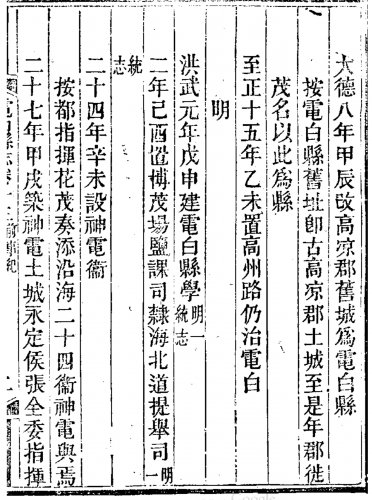 大德八年甲辰改高凉郡舊城爲電白縣
按電白縣舊址卽古高凉郡土城至是年郡徙
茂名以此爲縣
至正十五年乙未置高州路仍治電白
明
洪武元年戊申建電白縣學明一統志
二年己酉置博茂場鹽課司隸海北道提舉司明一
統志
二十四年辛未設神電衞
按都指揮花茂奏添沿海二十四衞神電與焉
二十七年甲戌築神電土城永定侯張全委指揮